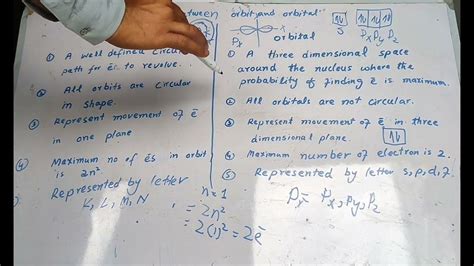 between orbit and orbital
S Px Py Pz
Px
orbital
① A well defined circu
path for ēs to revolve.
② All orbits are circular
in shape.
③ Represent movement of ē
in one plane
④ Maximum no of ēs in orbit
is 2n²
Represented by letter
K, L, M, N
n = 1
= 2n²
= 2(1)² = 2ē
① A three dimensional space
around the nucleus where the
probability of finding ē is maximum.
② All orbitals are not circular.
③ Represent movement of ē in three
dimensional plane
④ Maximum number of electron is 2.
⑤ Represented by letter s, p, d, f.
Px, Py, Pz